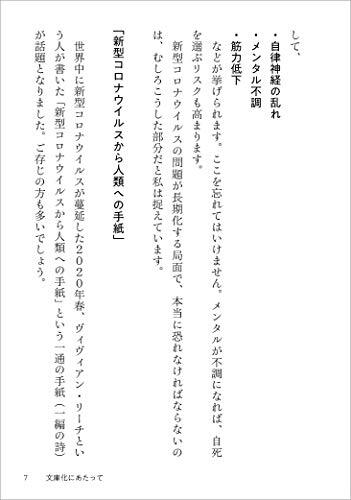 して、
・自律神経の乱れ
・メンタル不調
・筋力低下
などが挙げられます。ここを忘れてはいけません。メンタルが不調になれば、自死
を選ぶリスクも高まります。
新型コロナウイルスの問題が長期化する局面で、本当に恐れなければならないの
は、むしろこうした部分だと私は捉えています。
「新型コロナウイルスから人類への手紙」
世界中に新型コロナウイルスが蔓延した2020年春、ヴィヴィアン・リーチとい
う人が書いた「新型コロナウイルスから人類への手紙」という一通の手紙（一編の詩）
が話題となりました。ご存じの方も多いでしょう。
7 文庫化にあたって